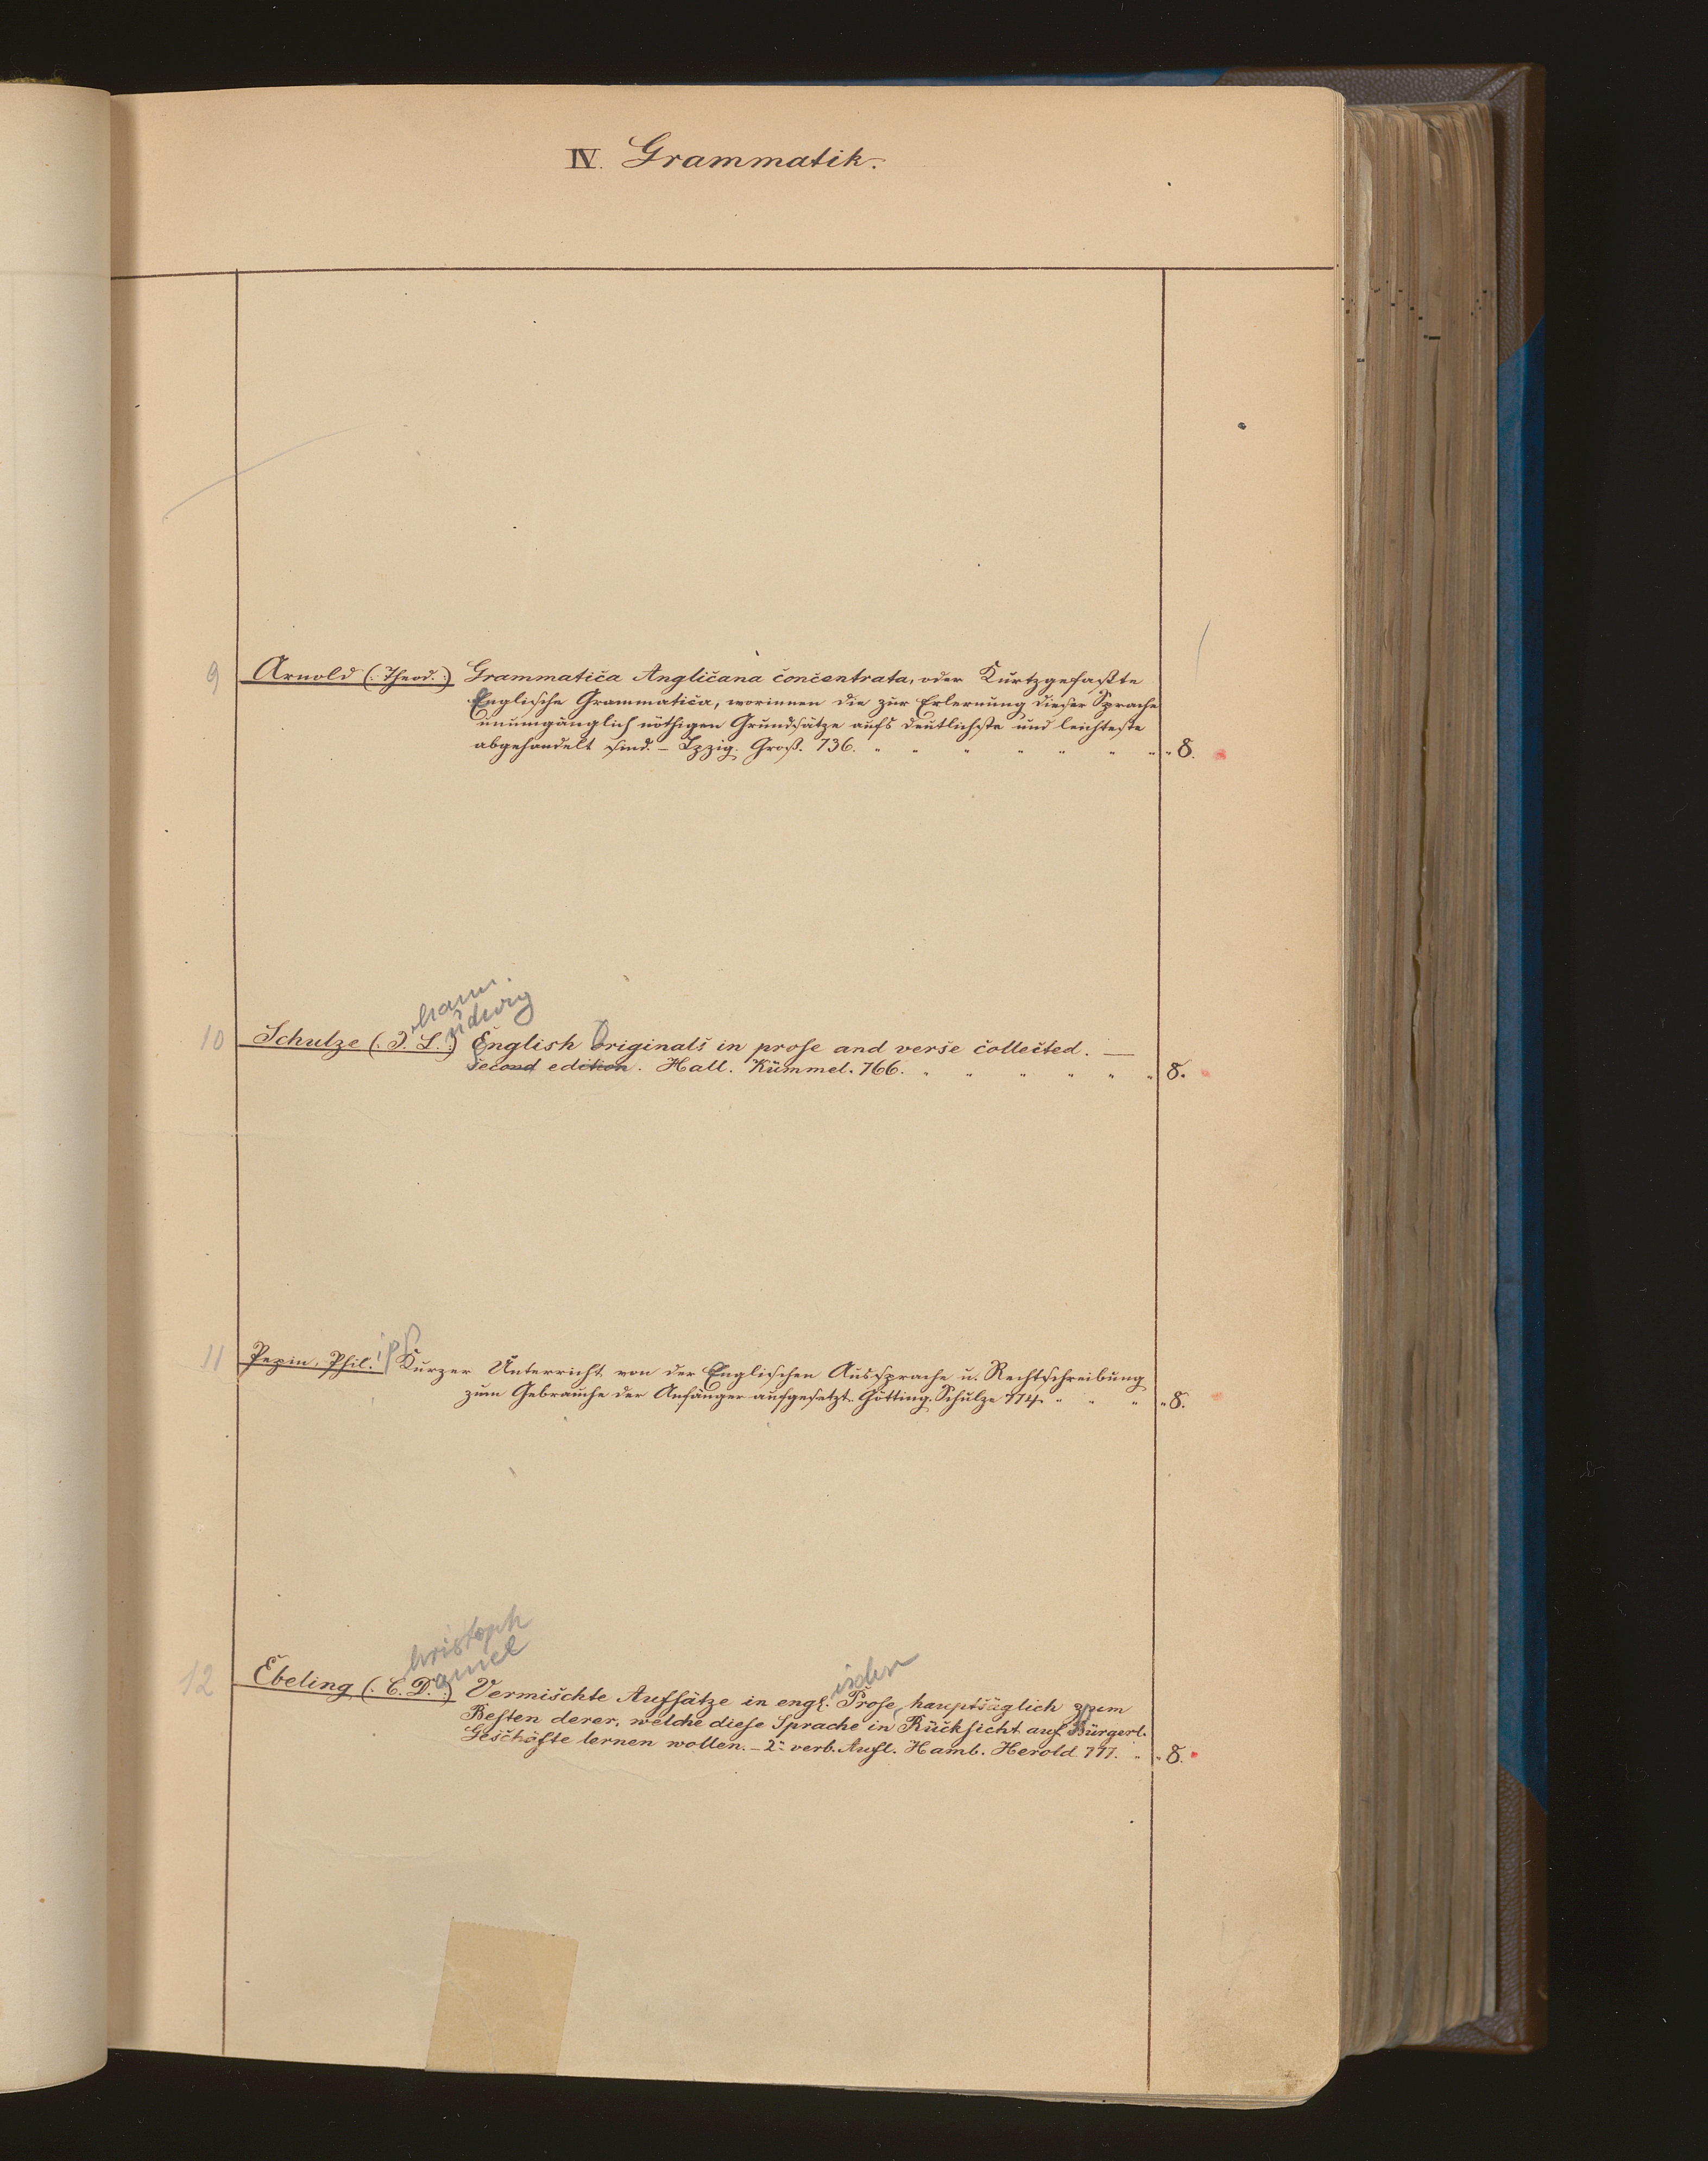 IV. Grammatik.
9 Arnold (: Theod. :) Grammatica Anglicana concentrata, oder Kurtzgefaßte
Englische Grammatica, worinnen die zur Erlernung dieser Sprache
unumgänglich nöthigen Grundsätze aufs deutlichste und leichteste
abgehandelt sind. – Lpzig. Groß. 736. " " " " " " " " 8.
ohann
udwig
10 Schulze (: J. L. :) English Originals in prose and verse collected. —
second edition. Hall. Kümmel. 766. " " " " " " 8.
ipp
11 Pepin, Phil. Kurzer Unterricht von der Englischen Aussprache u. Rechtschreibung
zum Gebrauche der Anfänger aufgesetzt. Götting. Schulze 774. " " " " 8.
hristoph
aniel
ischer
12 Ebeling (: C. D. :) Vermischte Aufsätze in engl. Prose, hauptsäglich zum
Besten derer, welche diese Sprache in Rücksicht auf Bürgerl.
Geschäfte lernen wollen. – 2. verb. Aufl. Hamb. Herold 777. " " 8.